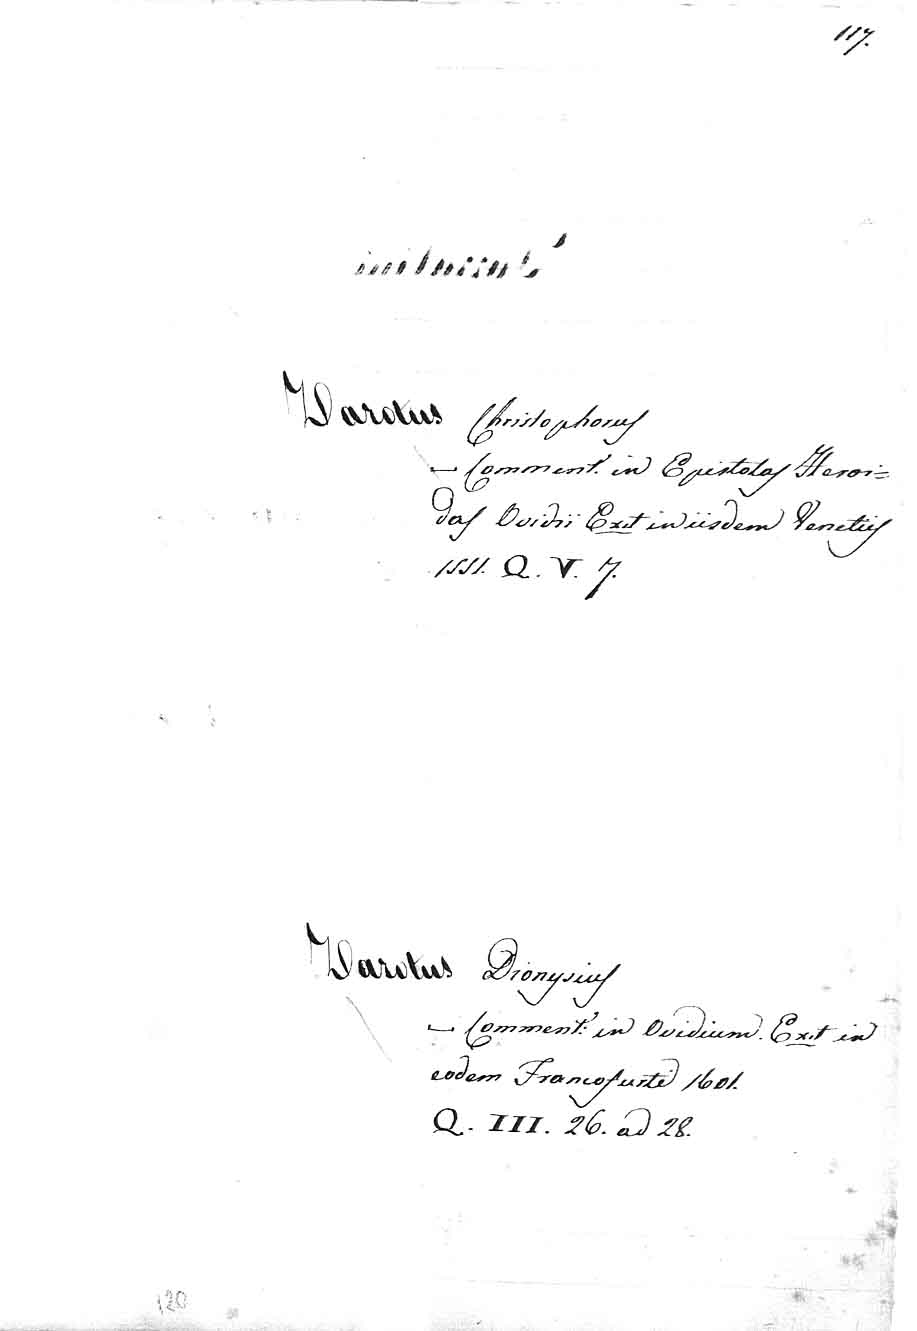 117.
Varotus Christophorus
— Comment.' in Epistolas Heroi=
das Ovidii Exit in iisdem Venetiis
1551. Q. V. 7.
Varotus Dionysius
— Comment.' in Ovidium. Exit in
eodem Francofurti 1601.
Q. III. 26. ad 28.
120